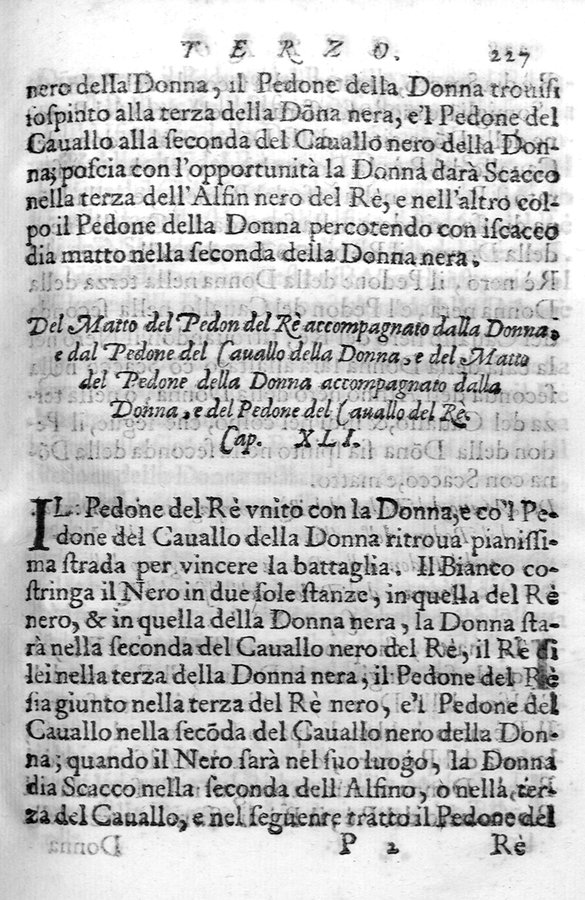 TERZO. 227
nero della Donna, il Pedone della Donna trouiſi
ſoſpinto alla terza della Dōna nera, e'l Pedone del
Cauallo alla ſeconda del Cauallo nero della Don-
na; poſcia con l'opportunità la Donna darà Scacco
nella terza dell'Alfin nero del Rè, e nell'altro col-
po il Pedone della Donna percotendo con iſcacco
dia matto nella ſeconda della Donna nera.
Del Matto del Pedon del Rè accompagnato dalla Donna,
e dal Pedone del Cauallo della Donna, e del Matto
del Pedone della Donna accompagnato dalla
Donna, e del Pedone del Cauallo del Re.
Cap. XLI.
IL Pedone del Rè vnito con la Donna, e co'l Pe-
done del Cauallo della Donna ritroua pianiſſi-
ma ſtrada per vincere la battaglia. Il Bianco co-
ſtringa il Nero in due ſole ſtanze, in quella del Rè
nero, & in quella della Donna nera, la Donna ſta-
rà nella ſeconda del Cauallo nero del Rè, il Rè ſi
lei nella terza della Donna nera, il Pedone del Rè
ſia giunto nella terza del Rè nero, e'l Pedone del
Cauallo nella ſecōda del Cauallo nero della Don-
na; quando il Nero ſarà nel ſuo luogo, la Donna
dia Scacco nella ſeconda dell'Alfino, ò nella ter-
za del Cauallo, e nel ſeguente tratto il Pedone del
P 2 Rè